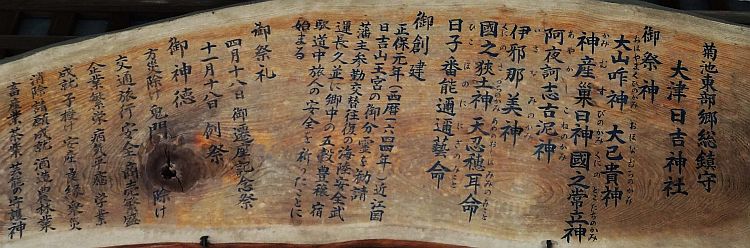 菊池東部郷総鎮守
大津日吉神社
御祭神
大山咋神 大己貴神
神産巣日神 國之常立神
阿夜訶志古泥神
伊邪那美神
國之狭立神 天忍穂耳命
日子番能邇邇藝命
御創建
正保元年（西暦一六四四年）近江国
日吉山王宮の御分霊を勧請
藩主参勤交替往復の海陸安全武
運長久並に郷中の五穀豊穣、宿
駅道中旅人の安全を祈ったことに
始まる
御祭礼
四月十八日 御遷座記念祭
十一月十八日 例祭
御神徳
方位除け 鬼門 除け
交通旅行安全 商売繁盛
企業繁栄 病気平癒 学業
成就 子授け 安産 良縁 衆災
消除 諸願成就 酒造 農林業
畜産業 茶業 芸能の守護神